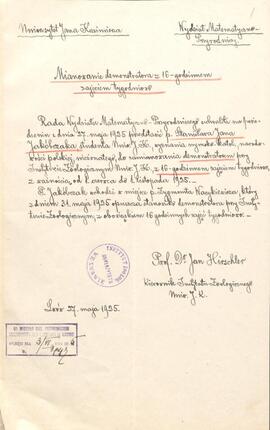 1
Uniwersytet Jana Kazimierza
Wydział Matematyczno-
Przyrodniczy.
Mianowanie demonstratora z 16-godzinnem
zajęciem tygodniowo
Rada Wydziału Matematyczno-Przyrodniczego uchwaliła na posie-
dzeniu z dnia 27. maja 1925 przedstawić p. Stanisława Jana
Jakóbczaka studenta Uniw. J. K., wyznania rzymsko-katol., narodo-
wości polskiej, do zamianowania demonstratorem przy
Instytucie Zoologicznym Uniw. J. K., z 16-godzinnem zajęciem tygodniowo,
z ważnością od 1. czerwca do 1. listopada 1925.
P. Jakóbczak wchodzi w miejsce p. Zygmunta który
z dniem 31. maja 1925 opuszcza stanowisko demonstratora przy Insty-
tucie Zoologicznym, z obowiązkiem 16 godzinnych zajęć tygodniowo.
Prof. Dr Jan Hirschler
Kierownik Instytutu Zoologicznego
Uniw. J. K.
Lwów 27. maja 1925.
INSTYTUT ZOOLOG.